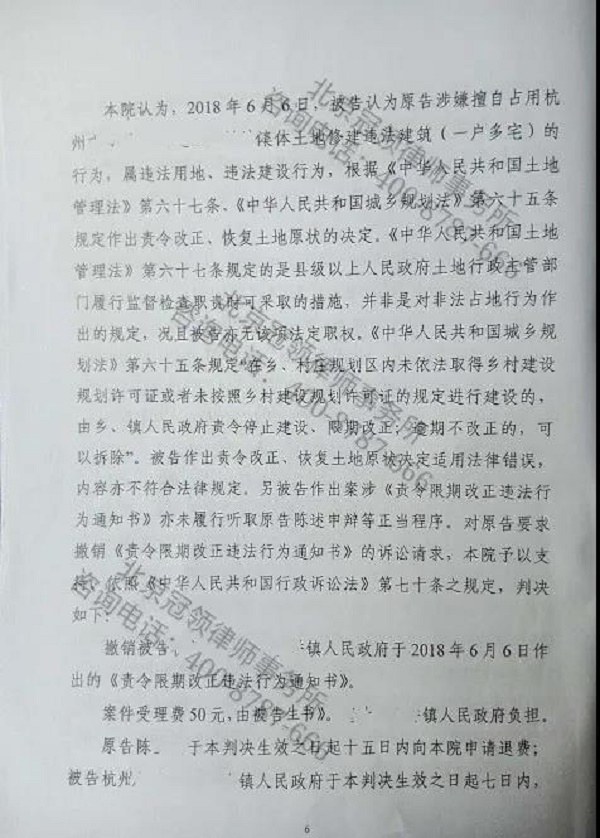 本院认为，2018年6月6日，被告认为原告涉嫌擅自占用杭
州 集体土地修建违法建筑（一户多宅）的
行为，属违法用地、违法建设行为，根据《中华人民共和国土地
管理法》第六十七条、《中华人民共和国城乡规划法》第六十五条
规定作出责令改正、恢复土地原状的决定。《中华人民共和国土地
管理法》第六十七条规定的是县级以上人民政府土地行政主管部
门履行监督检查职责时可采取的措施，并非是对非法占地行为作
出的规定，况且被告亦无该项法定职权。《中华人民共和国城乡规
划法》第六十五条规定“在乡、村庄规划区内未依法取得乡村建设
规划许可证或者未按照乡村建设规划许可证的规定进行建设的，
由乡、镇人民政府责令停止建设、限期改正；逾期不改正的，可
以拆除”。被告作出责令改正、恢复土地原状决定适用法律错误，
内容亦不符合法律规定。另被告作出案涉《责令限期改正违法行
为通知书》亦未履行听取原告陈述申辩等正当程序。对原告要求
撤销《责令限期改正违法行为通知书》的诉讼请求，本院予以支
持。依照《中华人民共和国行政诉讼法》第七十条之规定，判决
如下：
撤销被告 镇人民政府于2018年6月6日作
出的《责令限期改正违法行为通知书》。
案件受理费50元，由被告 镇人民政府负担。
原告陈 于本判决生效之日起十五日内向本院申请退费；
被告杭州 镇人民政府于本判决生效之日起七日内，
6
北京冠领律师事务所
咨询电话：400-8789-666
北京冠领律师事务所
咨询电话：400-8789-666
北京冠领律师事务所
咨询电话：400-8789-666